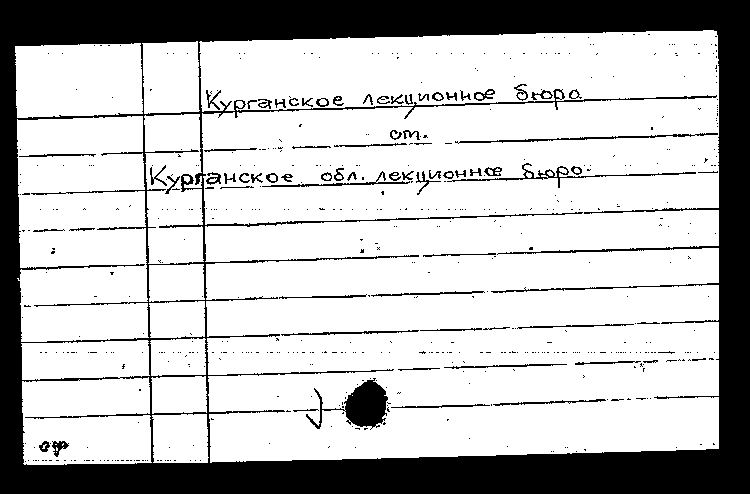 Курганское лекционное бюро
ст.
Курганское обл. лекционное бюро.